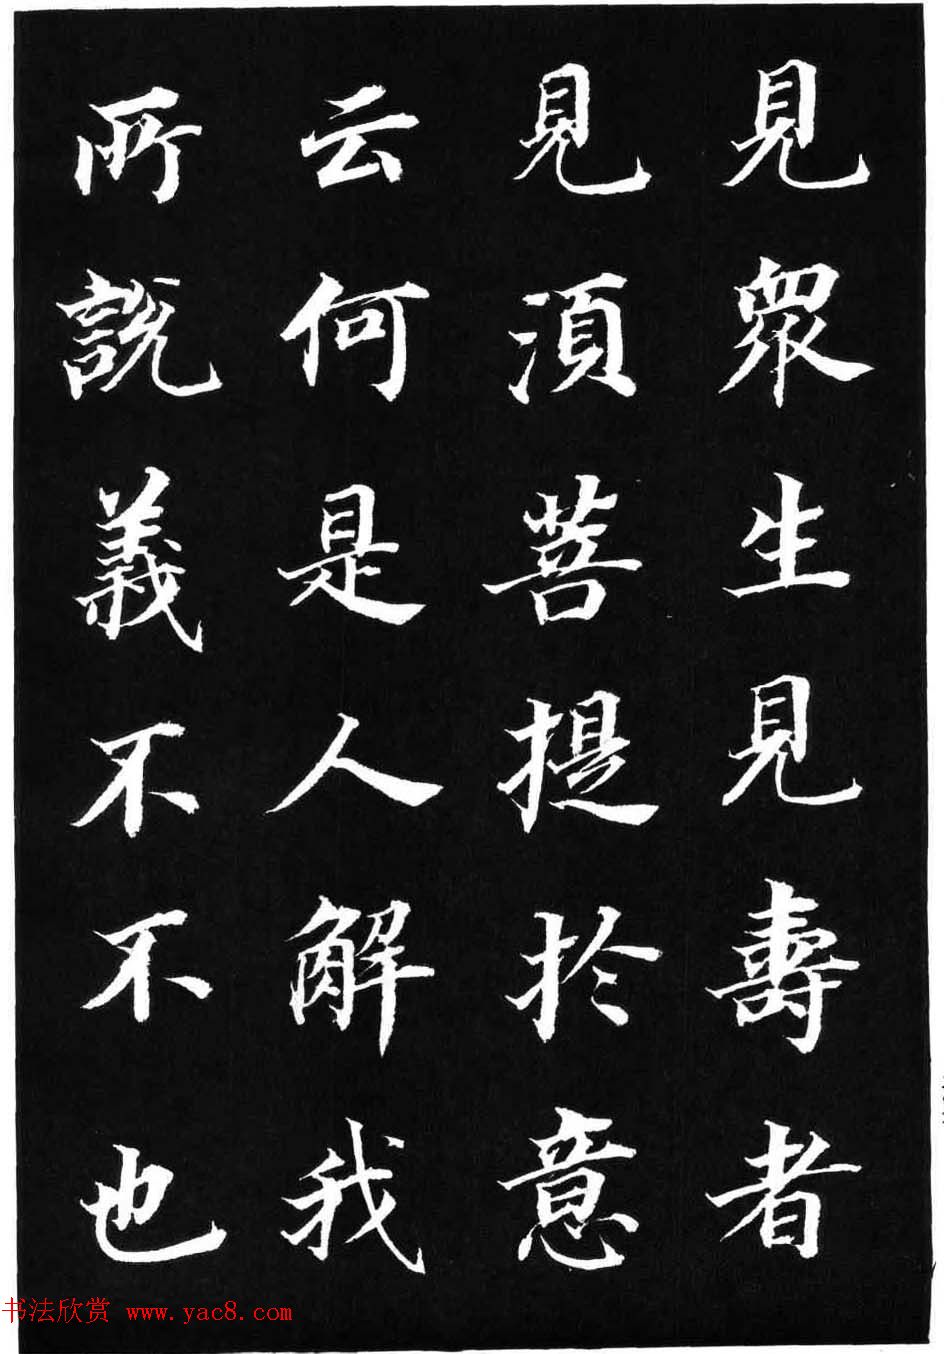 見眾生見壽者
見湏菩提扵意
云何是人解我
所說義不不也
书法欣赏 www.yac8.com